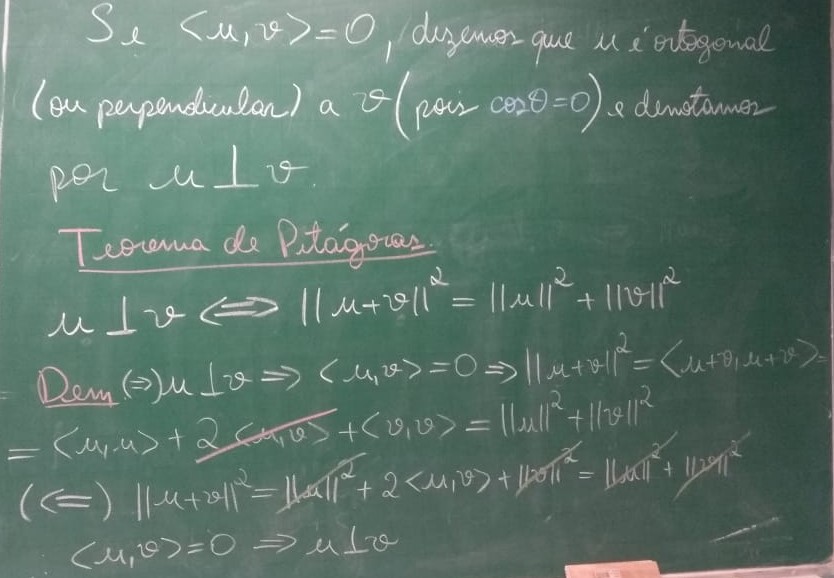 Se <u,v>=0, dizemos que u é ortogonal
(ou perpendicular) a v (pois cosθ=0) e denotamos
por u ⊥ v.
Teorema de Pitágoras.
u ⊥ v ⟺ ||u+v||² = ||u||² + ||v||²
Dem (⇒) u ⊥ v ⇒ <u,v> = 0 ⇒ ||u+v||² = <u+v, u+v> =
= <u,u> + 2<u,v> + <v,v> = ||u||² + ||v||²
(⇐) ||u+v||² = ||u||² + 2<u,v> + ||v||² = ||u||² + ||v||²
<u,v> = 0 ⇒ u ⊥ v